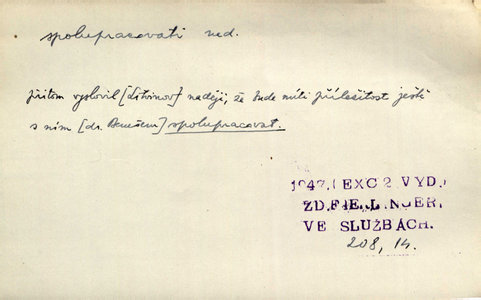 spolupracovati ned.
přitom vyslovil [Litvinov] naději, že bude míti příležitost ještě
s ním [dr. Benešem] spolupracovat.
1947.(EXC 2 VYD.)
ZD.FIERLINGER,
VE SLUŽBÁCH.
208, 14.